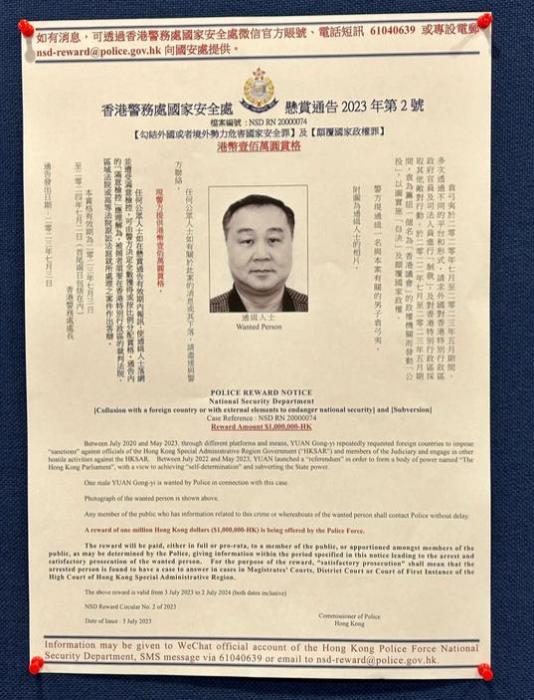 如有消息，可透過香港警務處國家安全處微信官方賬號、電話短訊 61040639 或專設電郵
nsd-reward@police.gov.hk 向國安處提供。
香港警務處國家安全處 懸賞通告 2023 年第 2 號
檔案編號：NSD RN 20000074
【勾結外國或者境外勢力危害國家安全罪】及【顛覆國家政權罪】
港幣壹佰萬圓賞格
袁弓夷於二〇二〇年七月至二〇二三年五月期間，
多次透過不同的平台和形式，請求外國對香港特別行政區
政府官員及司法人員進行「制裁」及對香港特別行政區採
取其他敵對行動。於二〇二二年七月至二〇二三年五月期
間，袁為籌組一個名為「香港議會」的政權機關而發動「公
投」，以圖實施「自決」及顛覆國家政權。
警方現通緝一名與本案有關的男子袁弓夷。
附圖為通緝人士的相片。
任何公眾人士如有關於此案的消息或其下落，請盡速與警
方聯絡。
現警方提供港幣壹佰萬圓賞格。
至二〇二四年七月二日（首尾兩日包括在內）
香港警務處處長
通告發出日期：二〇二三年七月三日
通緝人士
Wanted Person
POLICE REWARD NOTICE
National Security Department
[Collusion with a foreign country or with external elements to endanger national security] and [Subversion]
Case Reference : NSD RN 20000074
Reward Amount $1,000,000-HK
Between July 2020 and May 2023, through different platforms and means, YUAN Gong-yi repeatedly requested foreign countries to impose
"sanctions" against officials of the Hong Kong Special Administrative Region Government ("HKSAR") and members of the Judiciary and engage in other
hostile activities against the HKSAR. Between July 2022 and May 2023, YUAN launched a "referendum" in order to form a body of power named "The
Hong Kong Parliament", with a view to achieving "self-determination" and subverting the State power.
One male YUAN Gong-yi is wanted by Police in connection with this case.
Photograph of the wanted person is shown above.
Any member of the public who has information related to this crime or whereabouts of the wanted person shall contact Police without delay.
A reward of one million Hong Kong dollars ($1,000,000-HK) is being offered by the Police Force.
The reward will be paid, either in full or pro-rata, to a member of the public, or apportioned amongst members of the
public, as may be determined by the Police, giving information within the period specified in this notice leading to the arrest and
satisfactory prosecution of the wanted person. For the purpose of the reward, "satisfactory prosecution" shall mean that the
arrested person is found to have a case to answer in cases in Magistrates' Courts, District Court or Court of First Instance of the
High Court of Hong Kong Special Administrative Region.
The above reward is valid from 3 July 2023 to 2 July 2024 (both dates inclusive)
NSD Reward Circular No. 2 of 2023
Date of Issue : 3 July 2023
Commissioner of Police
Hong Kong
Information may be given to WeChat official account of the Hong Kong Police Force National
Security Department, SMS message via 61040639 or email to nsd-reward@police.gov.hk.